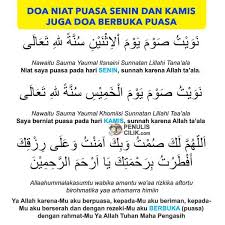 DOA NIAT PUASA SENIN DAN KAMIS
JUGA DOA BERBUKA PUASA
نَوَيْتُ صَوْمَ يَوْمَ اْلاِثْنَيْنِ سُنَّةً لِلّٰهِ تَعَالَى
Nawaitu Sauma Yaumal Itsneini Sunnatan Lillahi Tana'ala
Niat saya puasa pada hari SENIN, sunnah karena Allah ta'ala.
نَوَيْتُ صَوْمَ يَوْمَ الْخَمِيْسِ سُنَّةً لِلّٰهِ تَعَالَى
Nawaitu Sauma Yaumal Khomiisi Sunnatan Lillahi Toa'ala
Saya berniat puasa pada hari KAMIS, sunnah karena Allah ta'ala.
PENULIS
CILIK.com
اَللّٰهُمَّ لَكَ صُمْتُ وَبِكَ اٰمَنْتُ وَعَلَى رِزْقِكَ
أَفْطَرْتُ بِرَحْمَتِكَ يَا اَرْحَمَ الرَّحِمِيْنَ
Allaahummalakasumtu wabika amantu wa'aa rizkika aftortu
birohmatika yaa arhamarra himiin
Ya Allah karena-Mu aku berpuasa, kepada-Mu aku beriman, kepada-
Mu aku berserah dan dengan rezeki-Mu aku BERBUKA (puasa)
dengan rahmat-Mu Ya Allah Tuhan Maha Pengasih